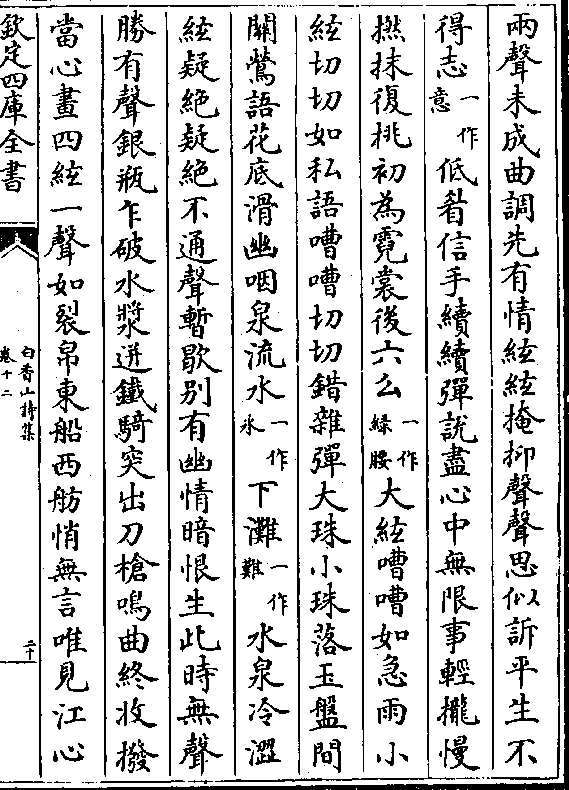 兩聲未成曲調先有情絃絃掩抑聲聲思似訴平生不
得志一作意低眉信手續續彈說盡心中無限事輕攏慢
撚抹復挑初為霓裳後六么一作綠腰大絃嘈嘈如急雨小
絃切切如私語嘈嘈切切錯雜彈大珠小珠落玉盤間
關鶯語花底滑幽咽泉流水一作氷下灘一作難水泉冷澀
絃疑絶疑絶不通聲暫歇别有幽情暗恨生此時無聲
勝有聲銀瓶乍破水漿迸鐵騎突出刀槍鳴曲終收撥
當心畫四絃一聲如裂帛東船西舫悄無言唯見江心
欽定四庫全書
白香山詩集
卷十二
二十